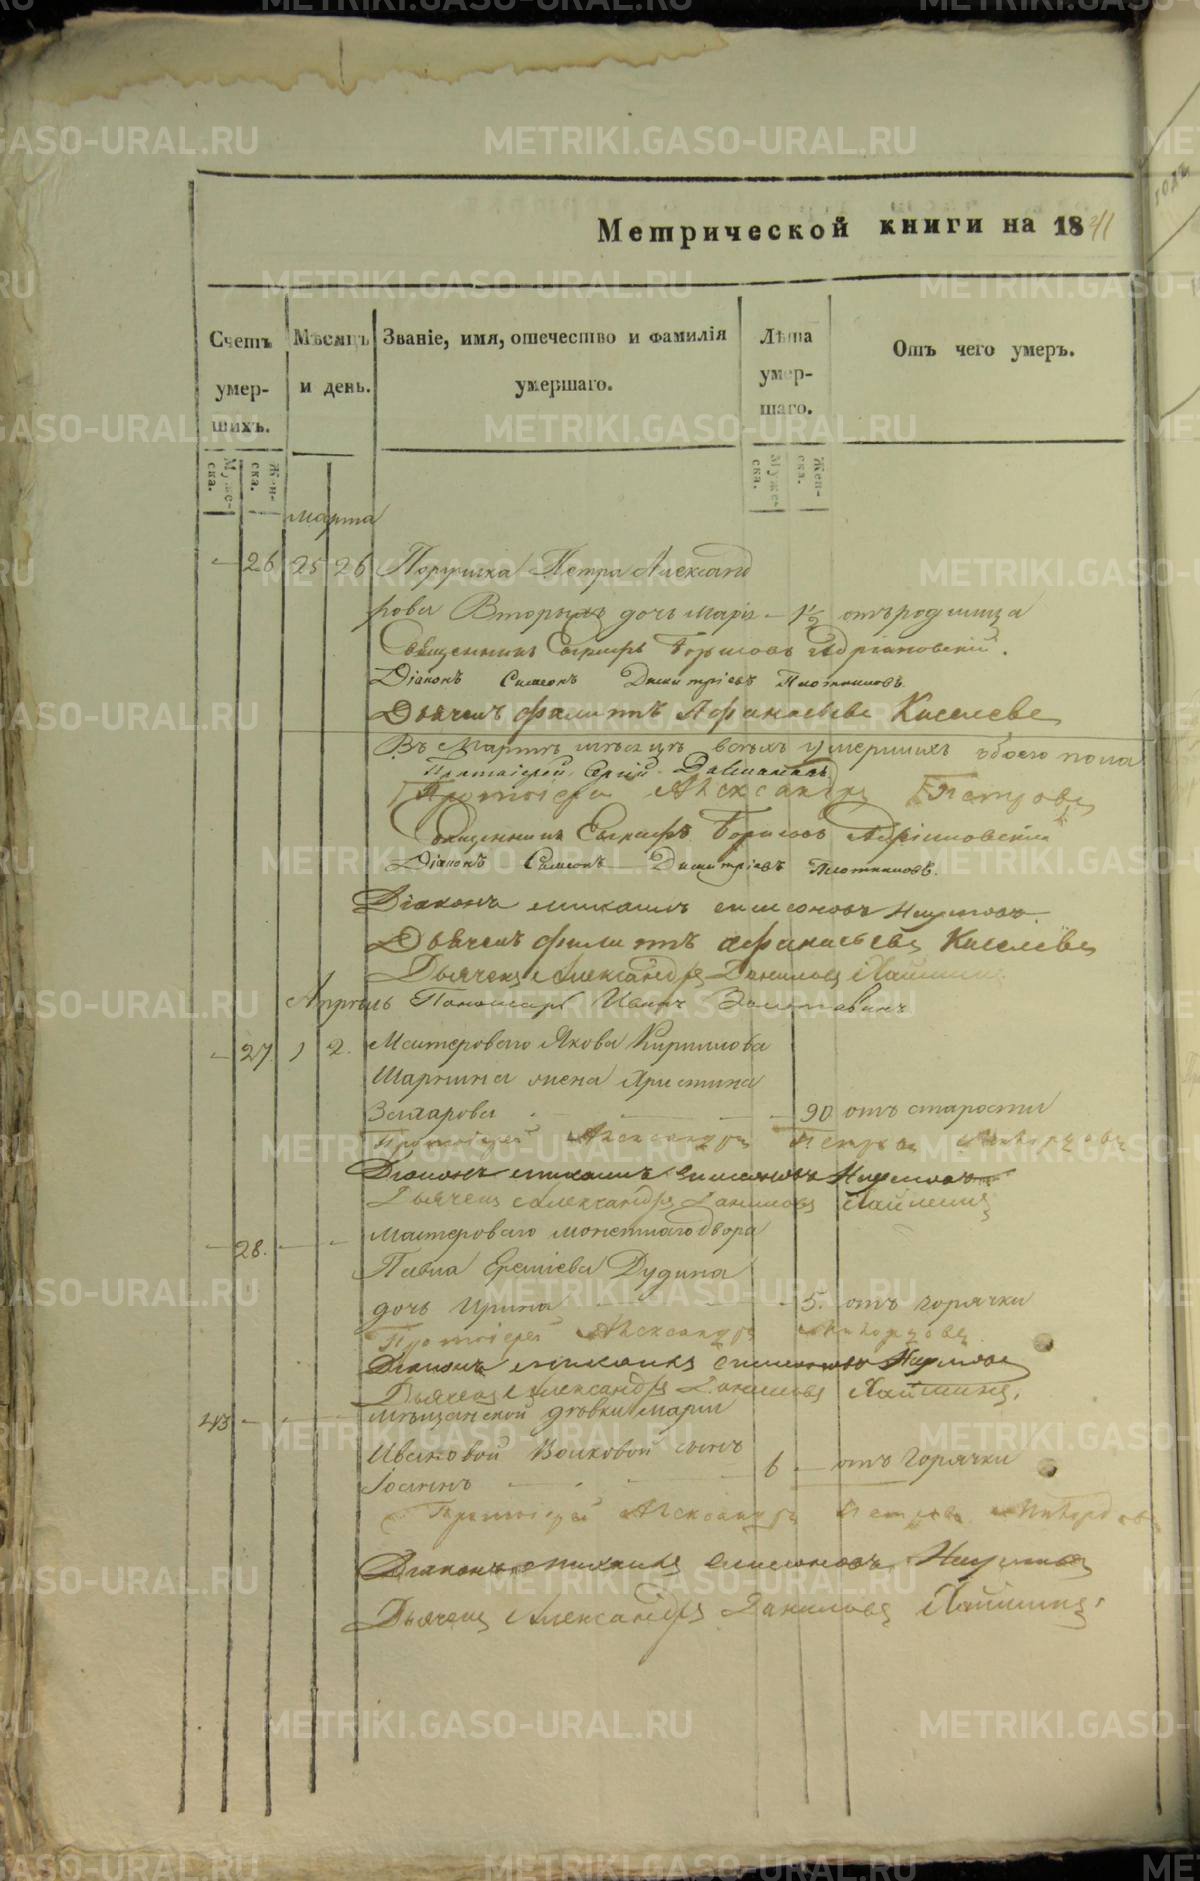 Метрической книги на 1841
Счетъ умер- шихъ.
Мѣсяцъ и день.
Званіе, имя, отечество и фамилія умершаго.
Лѣта умер- шаго.
Отъ чего умеръ.
Муже- ска. Жен- ска.
Муже- ска. Жен- ска.
марта
— 26 25 26 Поручика Петра Александ
рова Вторыхъ дочь Марія — 1½ отъ родимца
Священникъ Евграфъ Борисовъ Адріановскій.
Діаконъ Симеонъ Димитріевъ Плотниковъ.
Дьячекъ Филиппъ Афанасьевъ Киселевъ
Въ Мартѣ мѣсяцѣ всѣхъ умершихъ обоего пола
Протоіерей Сергій
Протоіерей Александръ Петровъ
Священникъ Евграфъ Борисовъ Адріановскій
Діаконъ Симеонъ Димитріевъ Плотниковъ.
Діаконъ Михаилъ Симеоновъ
Дьячекъ Филиппъ Афанасьевъ Киселевъ
Дьячекъ Александръ Даниловъ
Апрѣль Пономарь Иванъ
— 27. 1 2. Мастероваго Якова Кирилова
жена Христина
Захарова — — — 90 отъ старости
Протоіерей Александръ Петровъ
Діаконъ Михаилъ Симеоновъ
Дьячекъ Александръ Даниловъ
— 28. — — Мастероваго монетнаго двора
Павла Еремѣева Дудина
дочь Ирина — — - 5. отъ горячки
Протоіерей Александръ
Діаконъ Михаилъ Симеоновъ
Дьячекъ Александръ Даниловъ
43 — — — Мѣщанской дѣвки Маріи
Ивановой Волковой сынъ
Іоаннъ — — 6 — отъ горячки
Протоіерей Александръ Петровъ
Діаконъ Михаилъ Симеоновъ
Дьячекъ Александръ Даниловъ
METRIKI.GASO-URAL.RU